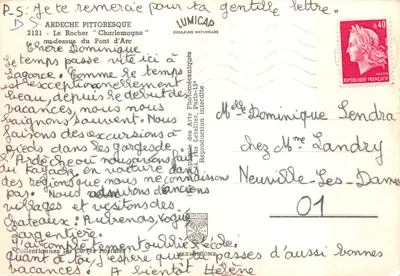 P-S: Je te remercie pour ta gentille lettre.
ARDECHE PITTORESQUE
2121 - Le Rocher "Charlemagne"
au-dessus du Pont d'Arc
LUMICAP
COULEURS NATURELLES
Chère Dominique
Le temps passe vite ici à
Lagorce. Comme le temps
est exceptionnellement
beau, depuis le début des
vacances, nous nous
baignons souvent. Nous
faisons des excursions à
pieds dans les gorges de
l'Ardèche où nous avons fait
du Kayack, en voiture dans
des régions que nous ne connaissions
pas. Nous avons vu d'anciens
villages et visitons des
chateaux: Aubenas, Vogüé
Largentière.
J'ai complètement oublié l'école
quant à toi, j'espère que tu passes d'aussi bonnes
vacances. A bientôt Hélène
Reproduction interdite
0,40
REPUBLIQUE FRANCAISE
Melle Dominique Lendra
chez Mme Landry
Neuville-Les-Dames
01